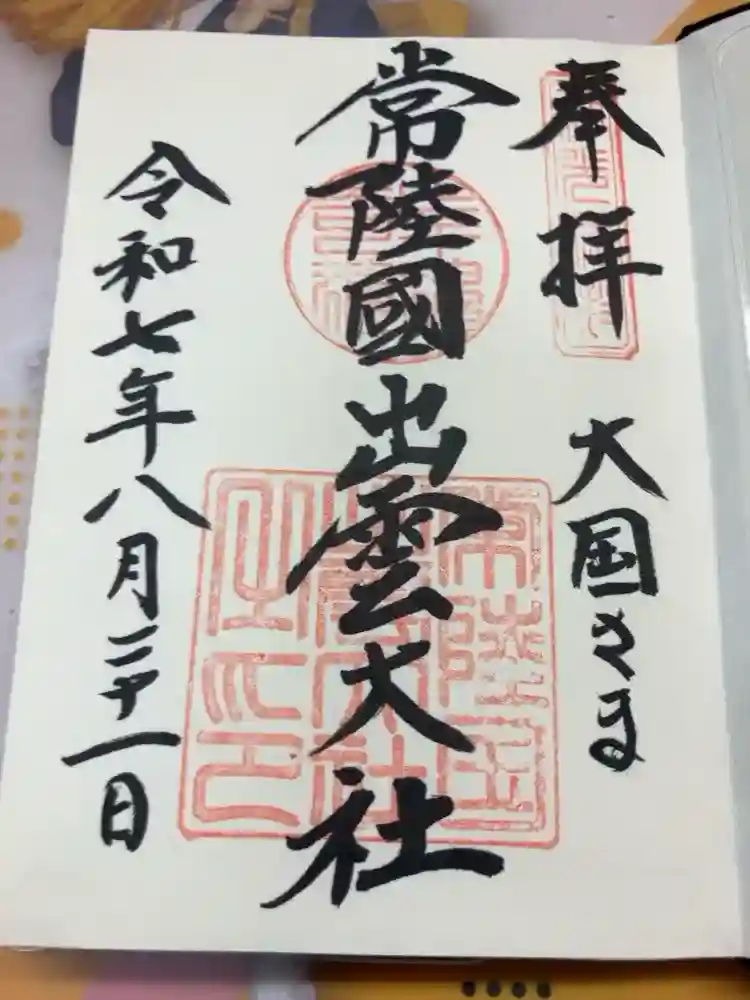 奉拝
大国さま
常陸國出雲大社
常陸国出雲大社之印
令和七年八月二十一日